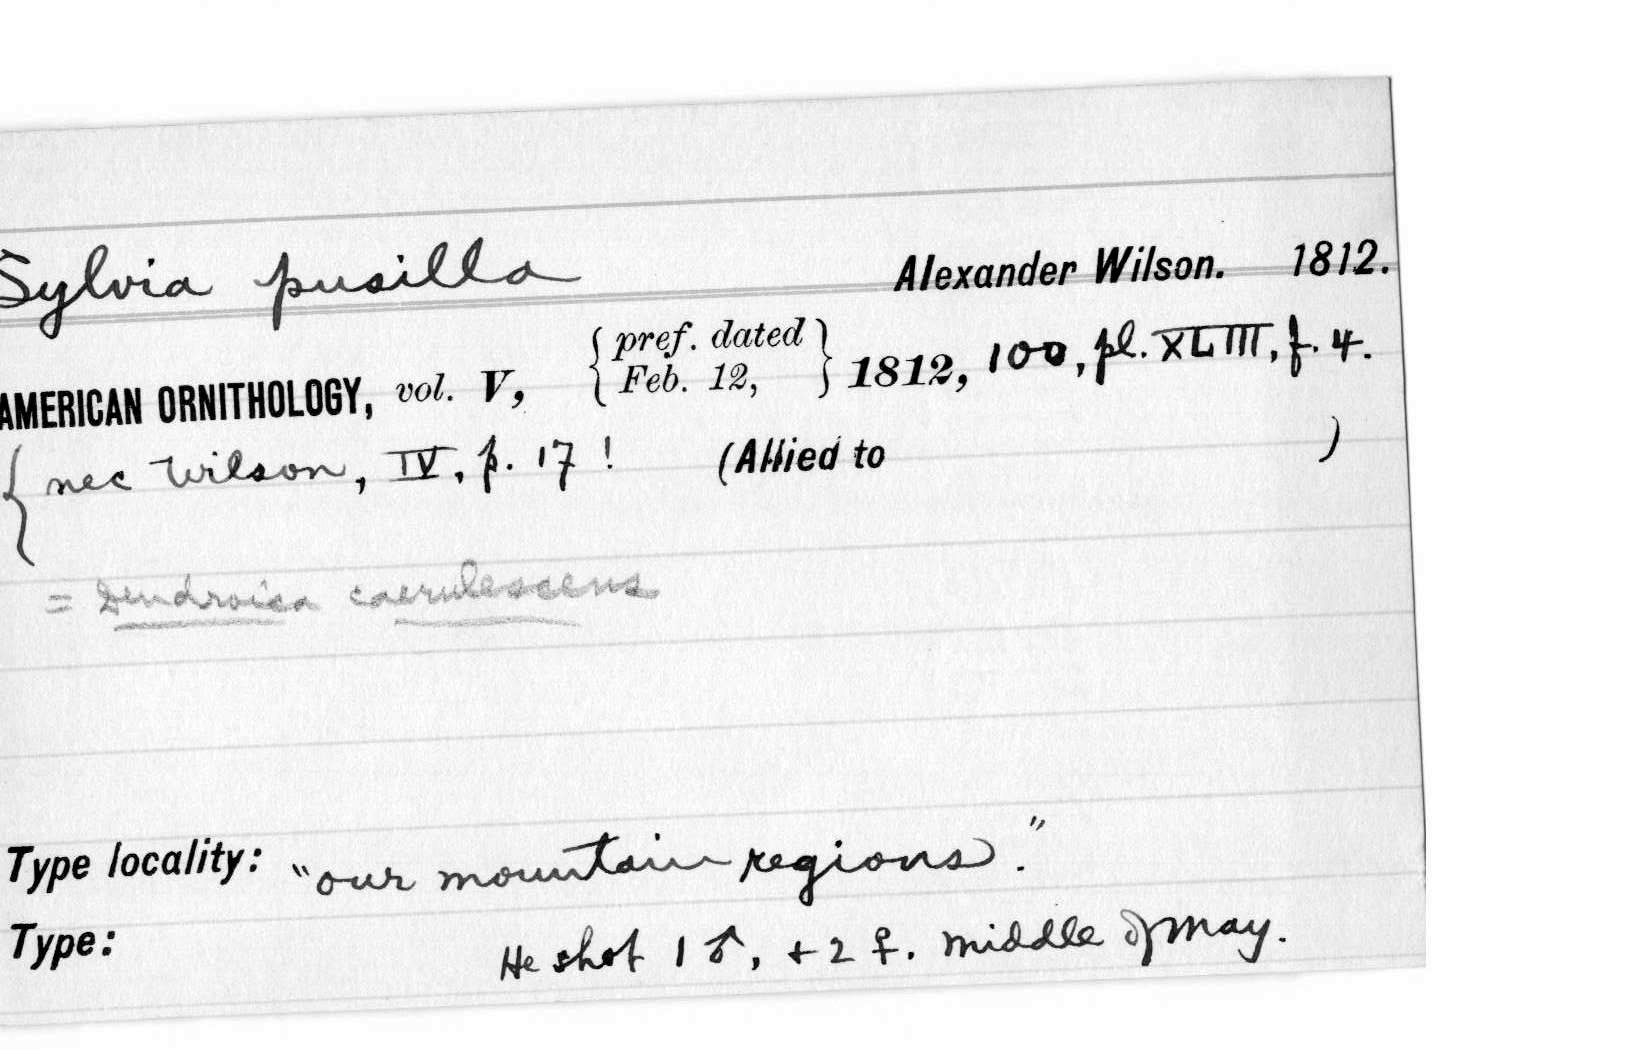 Sylvia pusilla Alexander Wilson. 1812.
AMERICAN ORNITHOLOGY, vol. V, { pref. dated Feb. 12, } 1812, 100, pl. XLIII, f. 4.
{ nec Wilson, IV, p. 17 ! (Allied to )
= Dendroica caerulescens
Type locality: "our mountain regions."
Type: He shot 1 ♂, + 2 ♀. middle of May.